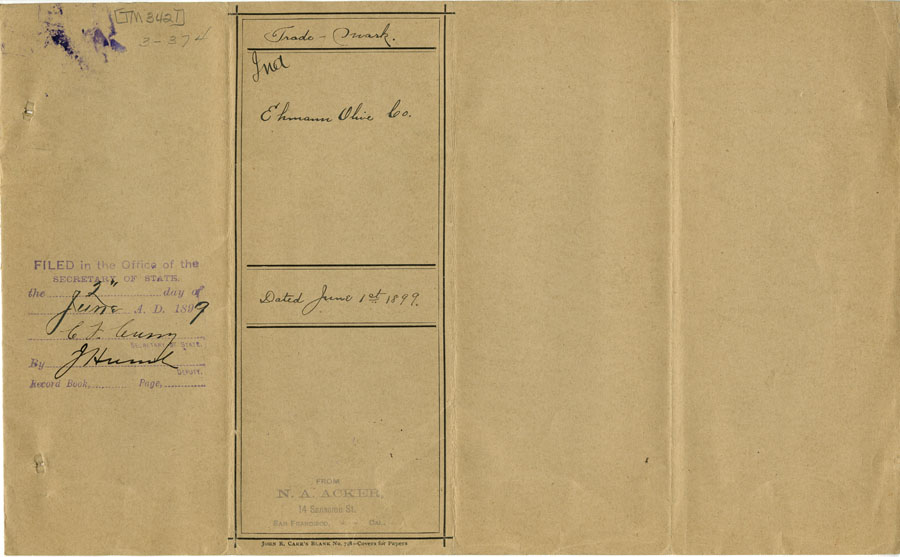 [TM 3421]
3-374
FILED in the Office of the
SECRETARY OF STATE.
the 2" day of
June A. D. 1899
C F Curry
SECRETARY OF STATE.
By J Hurd
DEPUTY.
Record Book, Page,
Trade-Mark.
Ind
Ehmann Olive Co.
Dated June 1st 1899.
FROM
N. A. ACKER,
14 Sansome St.
SAN FRANCISCO, - - CAL.
JOHN R. CARR'S BLANK No. 718—Covers for Papers